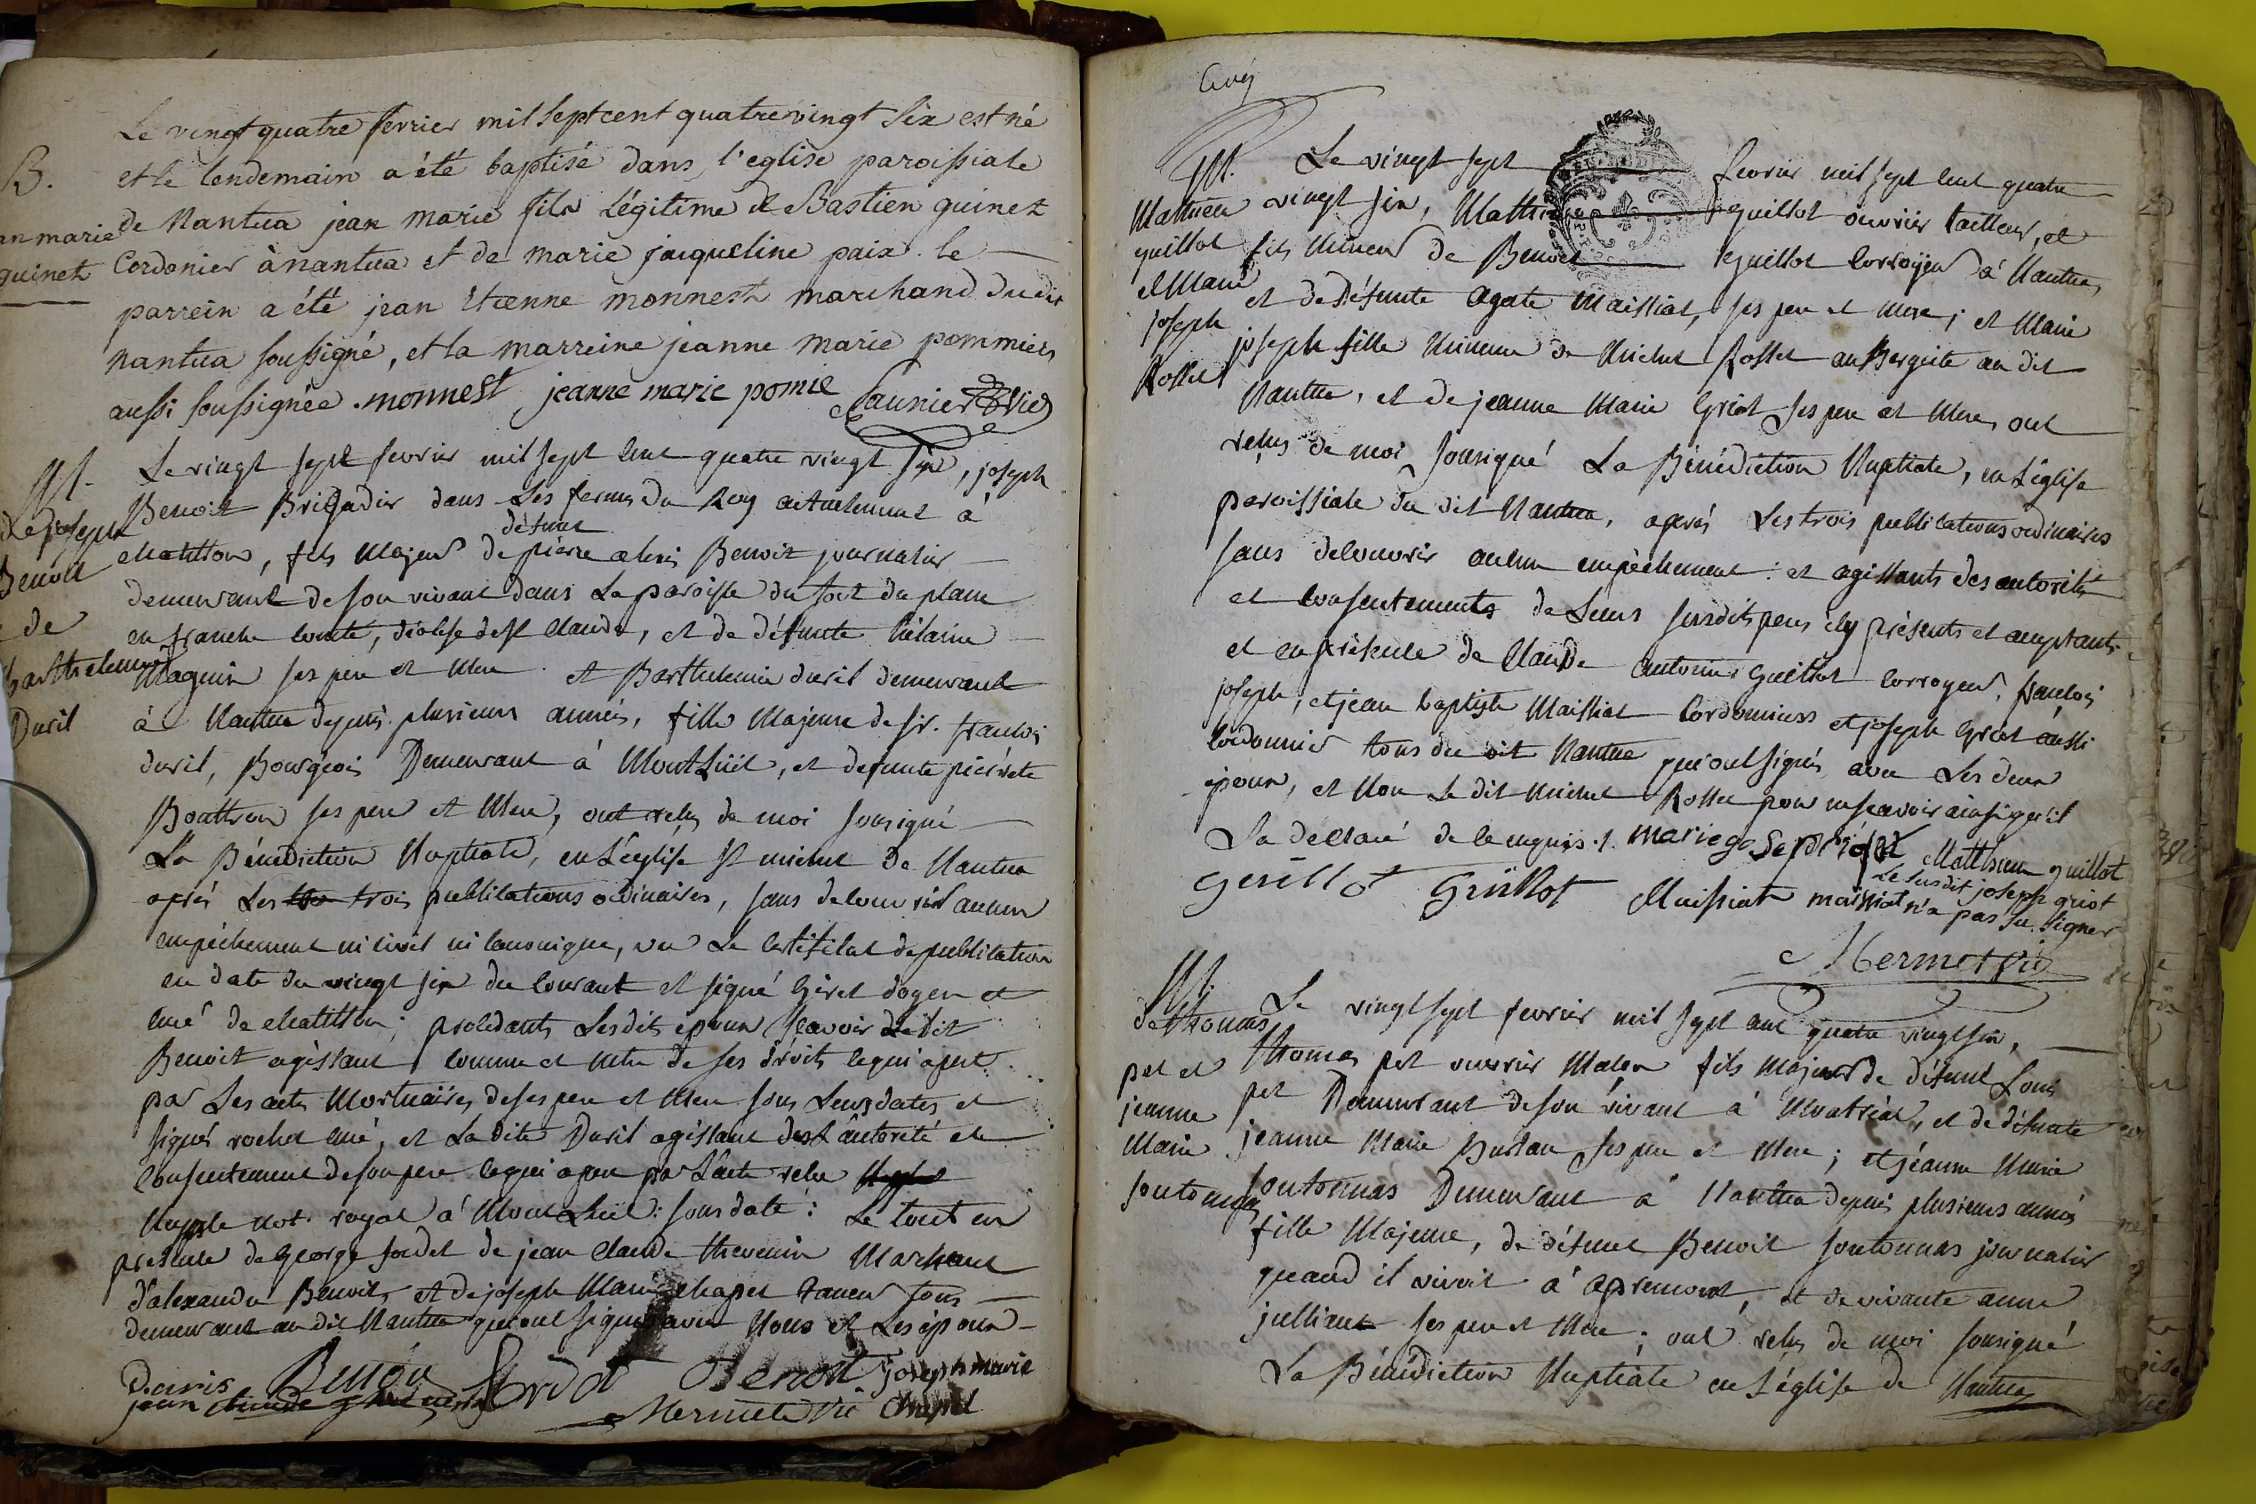 B.
an marie
guinet
Le vingt quatre fevrier mil sept cent quatre vingt six est né
et le lendemain a été baptisé dans l'eglise paroissiale
de Nantua jean marie fils légitime de Bastien guinet
Cordonier à nantua et de marie jacqueline paix. le
parrein a été jean Etienne monnest marchand dudit
nantua soussigné, et la marreine jeanne marie pommiers
aussi soussignée. monnest jeanne marie pomie Saunier Vic
M.
de joseph
Benoit
de
barthelemie
Duril
Le vingt sept fevrier mil sept cent quatre vingt six, joseph
Benoit Brigadier dans Les fermes du Roy actuelement à
défunt
chatillon, fils Majeur de pierre alexis Benoit journalier
demeurant de son vivant dans La paroisse du fort du plane
en franche comté, diocese de St Claude, et de défunte hilaire
Maguin ses pere et Mere. et Barthelemie duril demeurant
à Nantua depuis plusieurs années, fille Majeure de Sr. francois
duril, Bourgeois Demeurant à Montluel, et defunte pierrete
Bouttron ses pere et Mere, ont reçus de moi sousigné
La Bénédiction Nuptiale, en L'église St michel de Nantua
aprés Les trois publications ordinaires, sans decouvrir aucun
empéchement ni civil ni canonique, vu Le certificat de publication
en date du vingt six du courant et signé Girel doyen et
curé de chatillon; procedants Lesdits epoux scavoir Ledit
Benoit agissant comme et Mtre de ses droits ce qui apert
par Les actes Mortuaires de ses pere et Mere sous Leurs dates et
signés rochet curé, et La dite Duril agissant de L'autorité et
consentement de son pere ce qui apert par L'acte reçu
not. royal à Montluel: sous date: Le tout en
presence de George Sordet de jean claude thevenin Marchant
d'alexandre Benoit, et de joseph Marie chapel taneur tous
demeurant au dit Nantua qui ont signés avec Nous et Les époux
Duris Benoit Sordet Benoit joseph marie
jean claude thevenin Mermet Vic Chapel
M.
Mathieu
guillot
et Marie
joseph
Rosset
Le vingt sept fevrier mil sept cent quatre
vingt six, Mathieu Guillot ouvrier tailleur, et
fils Mineur de Benoit Guillot corroyeur à Nantua,
et de Défunte Agate Maissiat, ses pere et Mere; et Marie
joseph fille Mineure de Michel Rosset aubergiste au dit
Nantua, et de jeanne Marie Griot ses pere et Mere, ont
reçus de moi sousigné La Bénédiction Nuptiale, en L'église
paroissiale du dit Nantua, aprés Les trois publications ordinaires
sans decouvrir aucun empéchement: et agissants des autorités
et consentements de Leurs susdits peres icy présents et acceptants
et en présence de Claude antoine Guillot corroyeur, francois
joseph, et jean baptiste Maissiat Cordonniers et joseph Griot aussi
cordonnier tous du dit Nantua qui ont signés avec Les deux
époux, et Non Le dit Michel Rosset pour ne scavoir ainsi qu'il
L'a declaré de ce enquis. Matthieu guillot
Guillot Guillot Maissiat maissiat Le susdit joseph griot
n'a pas su signer
Mermet Vic
M.
de thomas
pet et
jeanne
Marie
Sontonnas
Le vingt sept fevrier mil sept cent quatre vingt six,
Thomas pet ouvrier Maçon fils Majeur de défunt Louis
pet Demeurant de son vivant à Montréal, et de défunte
jeanne Marie Burlan ses pere et Mere; et jeanne Marie
Sontonnas Demeurant à Nantua depuis plusieurs années
fille Majeure, de défunt Benoit Sontonnas journalier
quand il vivoit à apremont, et de vivante anne
julliant ses pere et Mere; ont reçus de moi sousigné
La Bénédiction Nuptiale en L'église de Nantua